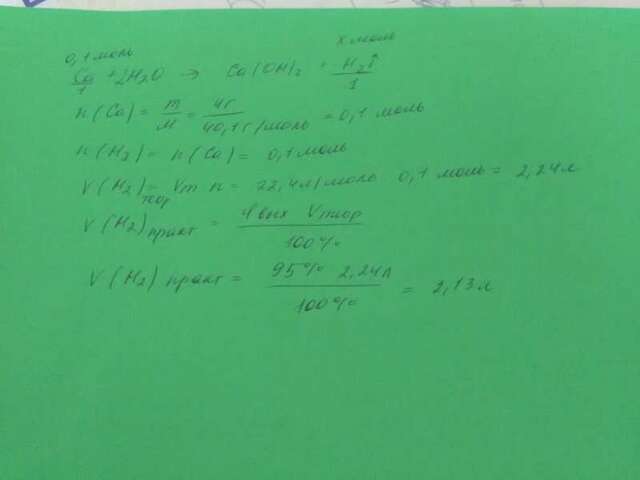 0,1 моль x моль
Ca + 2H₂O → Ca(OH)₂ + H₂↑
1 1
n(Ca) = m/M = 4г/40,1 г/моль = 0,1 моль
n(H₂) = n(Ca) = 0,1 моль
V(H₂)теор = Vm n = 22,4 л/моль 0,1 моль = 2,24 л
V(H₂)практ = φвых Vтеор/100%
V(H₂)практ = 95% 2,24л/100% = 2,13 л